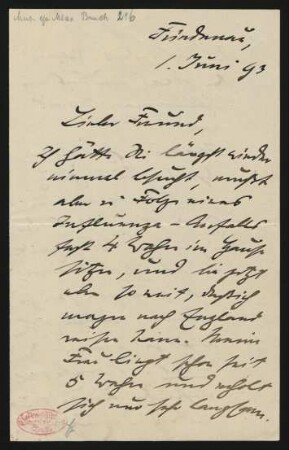 Friedenau,
1. Juni 93
Lieber Freund,
ich hätte Sie längst wieder
einmal besucht, mußte
aber in Folge eines
Influenza-Anfalls
fast 4 Wochen im Hause
sitzen, und bin jetzt
eben so weit, daß ich
morgen nach England
reisen kann. Meine
Frau liegt schon seit
5 Wochen und erholt
sich nur sehr langsam.